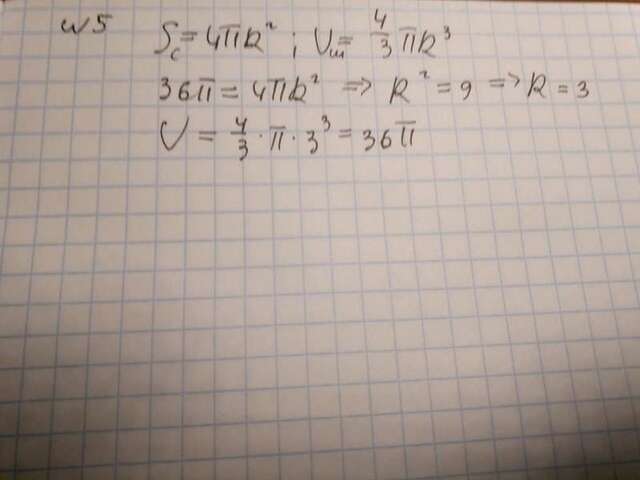 №5 S_c = 4πR² ; V_ш = 4/3 πR³
36π = 4πR² => R² = 9 => R = 3
V = 4/3 · π · 3³ = 36π